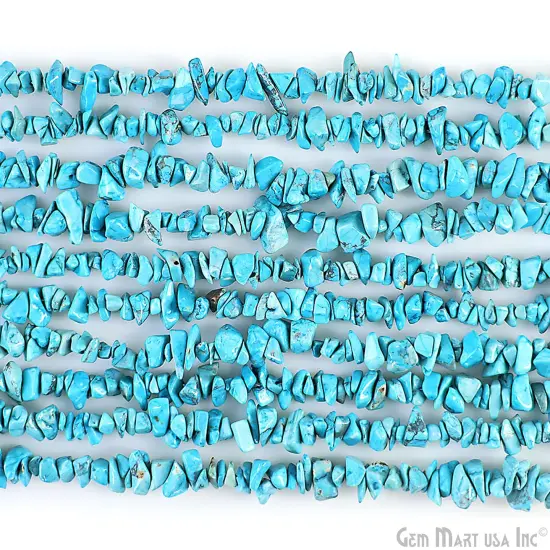 Gem Mart USA Inc®